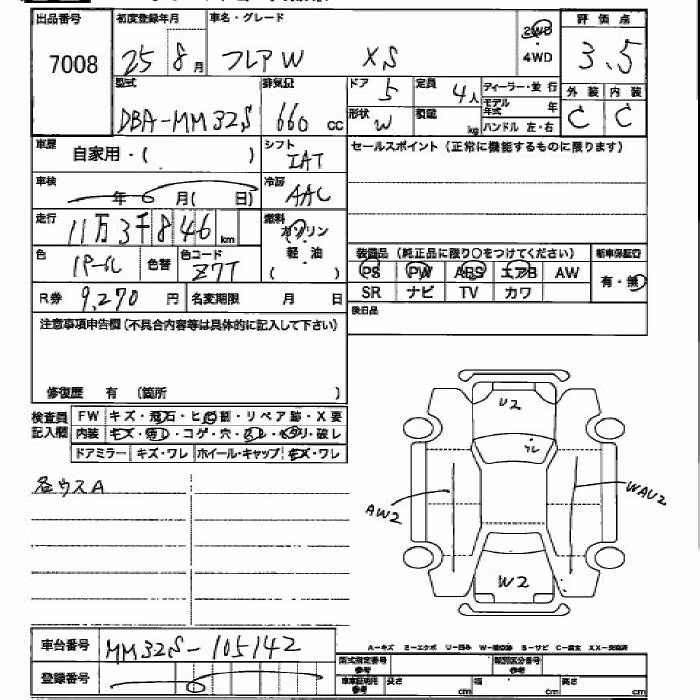 出品番号 初度登録年月 車名・グレード 2WD 評価点
7008 25 8月 フレアW XS 4WD 3.5
型式 排気量 ドア 5 定員 4人 ディーラー・並行 外装 内装
DBA-MM32S 660 cc 形状 W 積載 kg モデル年式 年 C C
ハンドル 左・右
車歴 自家用・( ) シフト IAT セールスポイント(正常に機能するものに限ります)
車検 年 月( 日) 冷房 AAC
走行 11万3千846 km 燃料 ガソリン
軽・油
( )
色 パール 色替 色コード Z7T 装備品(純正品に限り○をつけてください) 新車保証書
PS PW ABS エアB AW 有・無
R券 9,270 円 名変期限 月 日 SR ナビ TV カワ
注意事項申告欄(不具合内容等は具体的に記入して下さい) 後日品
修復歴 有 (箇所 )
検査員記入欄 FW キズ・飛石・ヒビ割・リペア跡・X要
内装 キズ・コゲ・穴・破レ
ドアミラー キズ・ワレ ホイール・キャップ キズ・ワレ
各ウスA
U2
AW2
WAU2
W2
車台番号 MM32S-105142
登録番号
A-キズ E-エクボ U-凹み W-補修跡 S-サビ C-腐食 XX-交換済
型式指定番号 参考 類別区分番号 参考
車庫証明用 参考 長さ cm 幅 cm 高さ cm